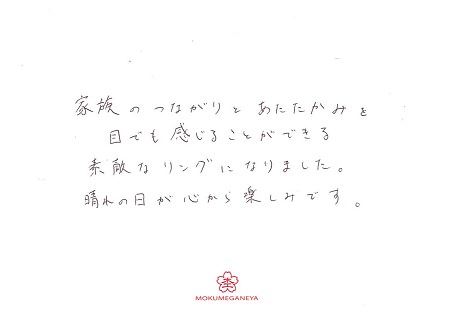 家族のつながりとあたたかみを
目でも感じることができる
素敵なリングになりました。
晴れの日が心から楽しみです。
MOKUMEGANEYA